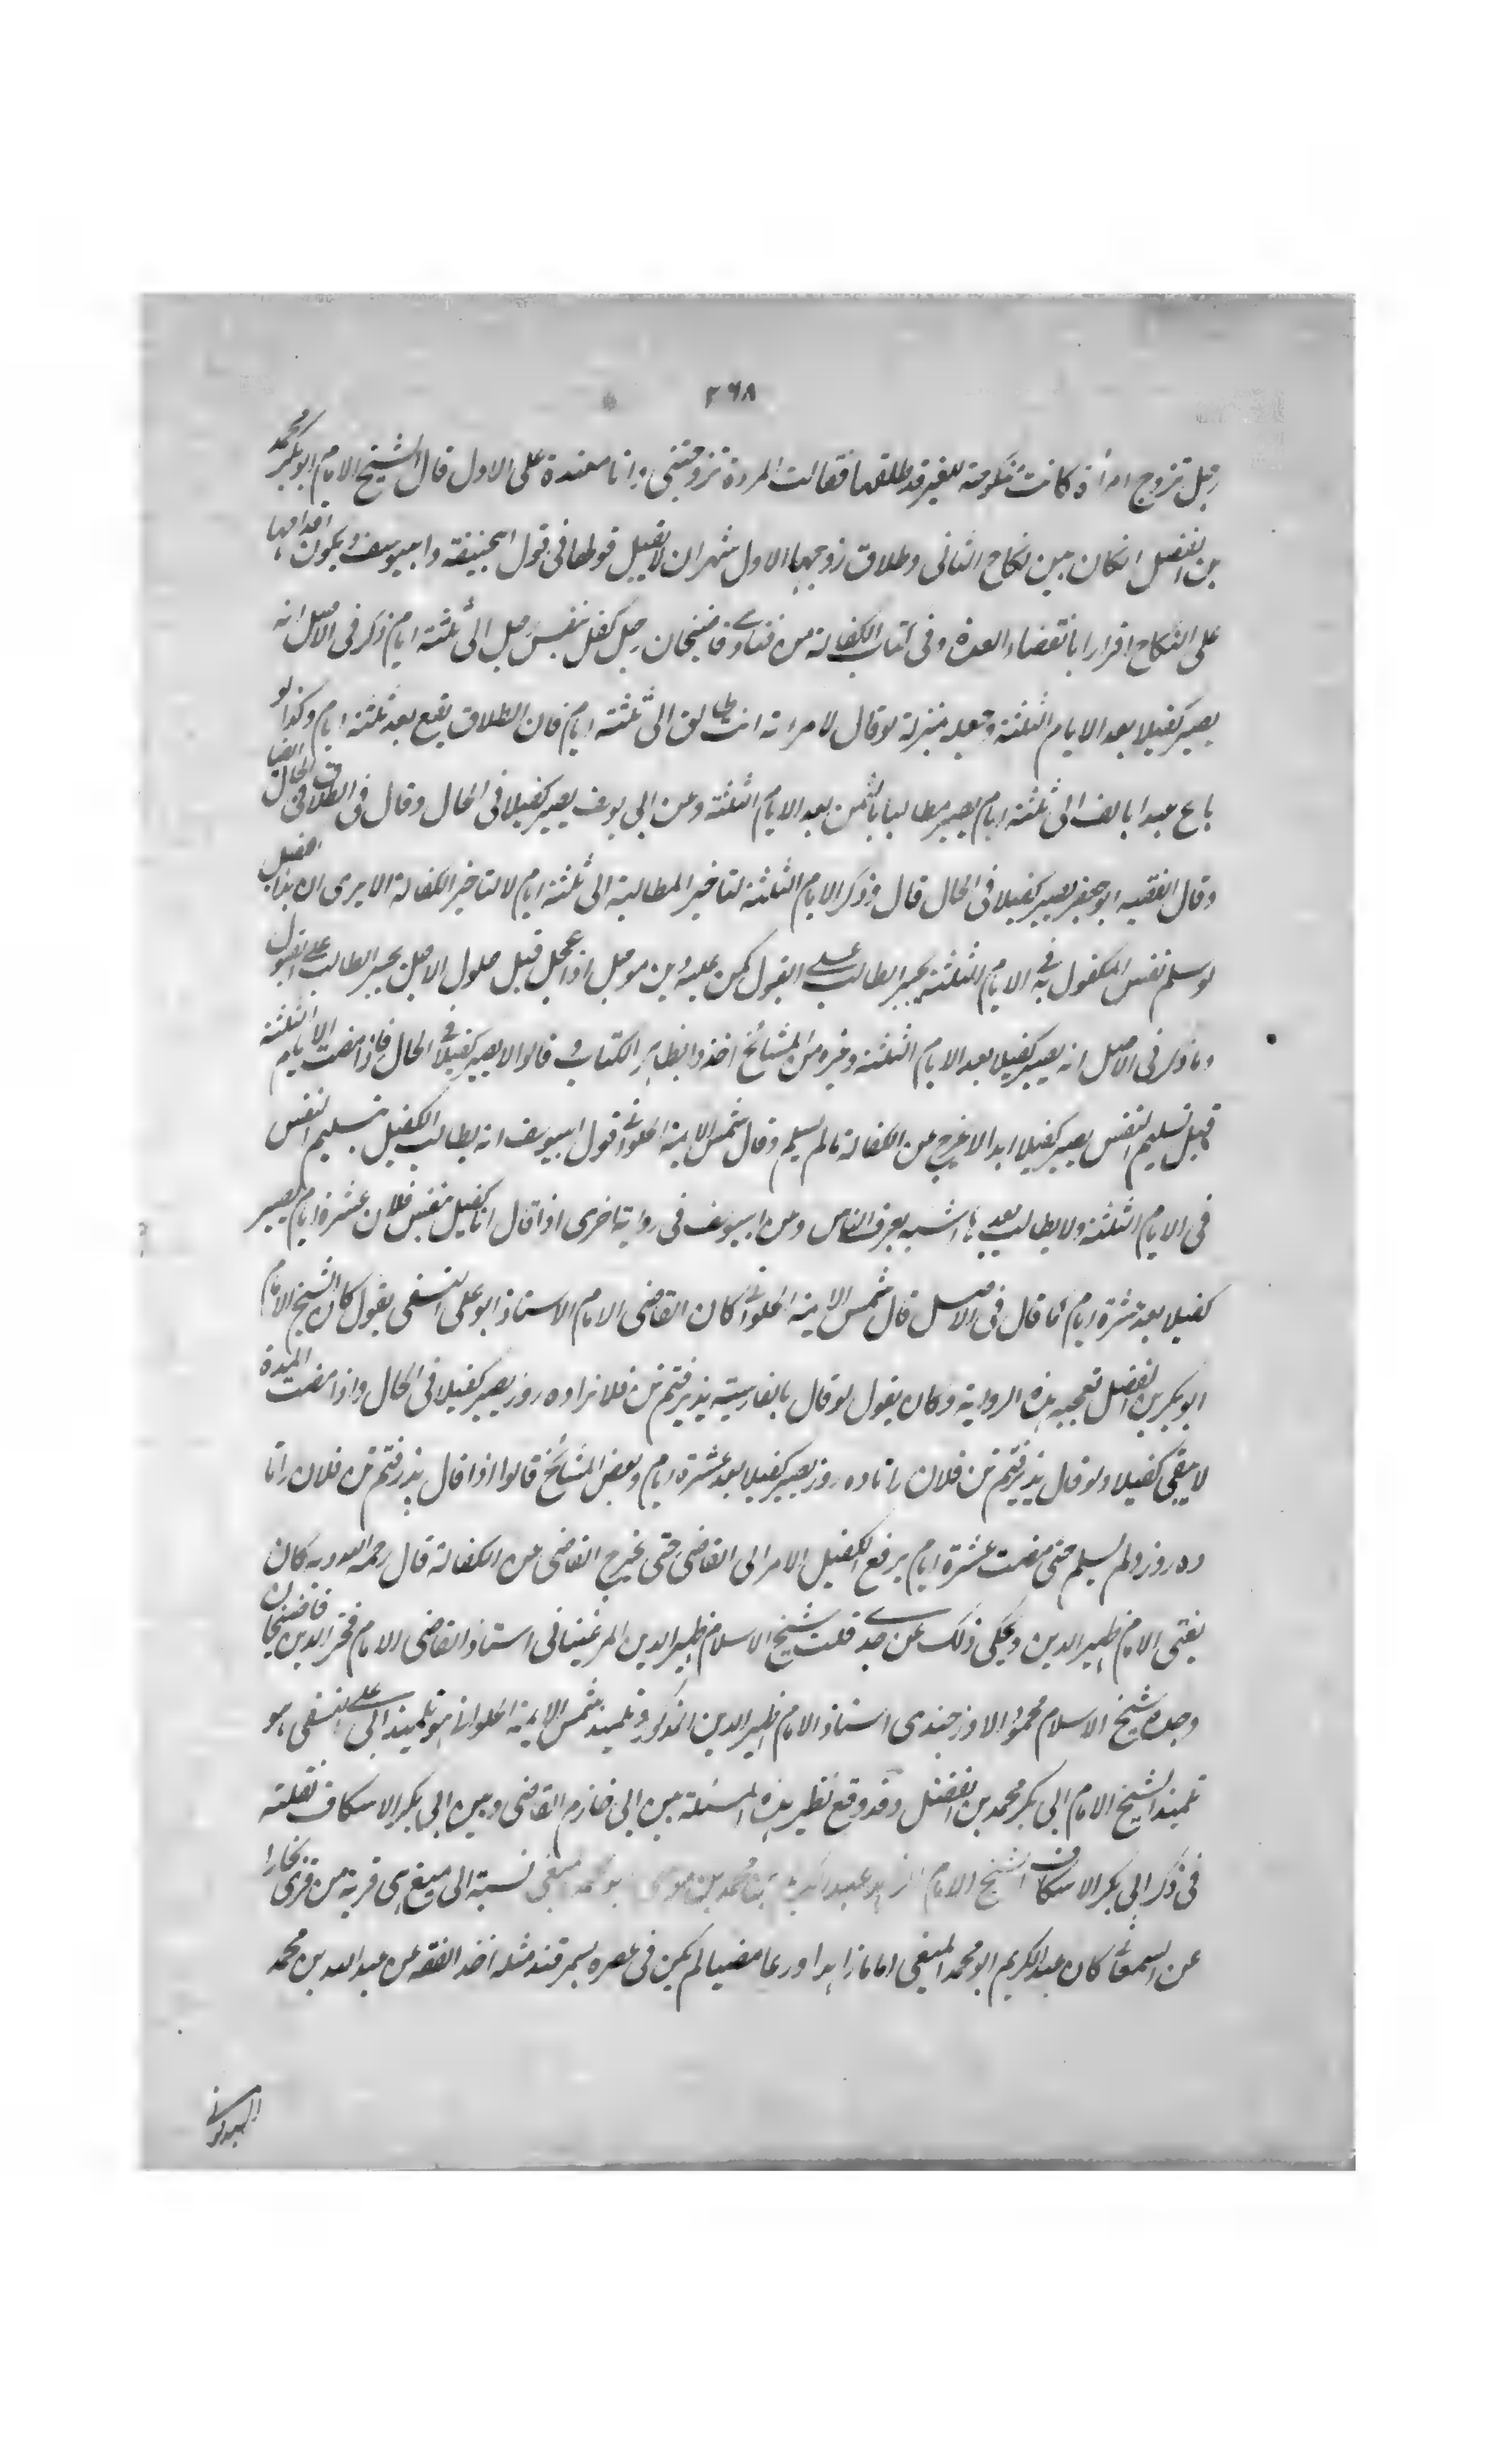 ٢٦٨
رجل تزوج امرأة كانت منكوحة للغير قد طلقها فقالت المرءة تزوجتنى وانا معتدة على الاول قال الشيخ الامام ابوبكر محمد
بن الفضل انكان بين نكاح الثانى وطلاق زوجها الاول شهران لا يقبل قولها فى قول ابيحنيفة وابييوسف ويكون اقدامها
على النكاح اقرارا بانقضاء العدة وفى كتاب الكفالة من فتاوے قاضيخان رجل كفل بنفس رجل الى ثلثة ايام ذكر فى الاصل انه
يصير كفيلا بعد الايام الثلثة وجعله بمنزلة لو قال لامراته انت طالق الى ثلثة ايام فان الطلاق يقع بعد ثلثة ايام وكذا لو
باع عبدا بالف الى ثلثة ايام يصير مطالبا بالثمن بعد الايام الثلثة وعن ابى يوسف يصير كفيلا فى الحال وقال فى الطلاق فى الحال ايضا
وقال الفقيه ابوجعفر يصير كفيلا فى الحال قال وذكر الايام الثلثة لتاخير المطالبة الى ثلثة ايام لا لتاخير الكفالة الا يرى ان هذا الكفيل
لو سلم نفس المكفول به فى الايام الثلثة يجبر الطالب على القبول كمن عليه دين موجل اذا عجل قبل حلول الاجل يجبر الطالب على القبول
وما ذكر فى الاصل انه يصير كفيلا بعد الايام الثلثة وغيره من المشائخ اخذوا بظاهر الكتاب وقالوا لا يصير كفيلا فى الحال فاذا مضت الايام الثلثة
قبل تسليم النفس يصير كفيلا ابدا لا يخرج عن الكفالة ما لم يسلم وقال شمس الايمة الحلوانى قول ابييوسف انه يطالب الكفيل بتسليم النفس
فى الايام الثلثة ولا يطالب بعدها اشبه بعرف الناس وعن ابييوسف فى رواية اخرى اذا قال انا كفيل بنفس فلان عشرة ايام يصير
كفيلا بعد عشرة ايام كما قال فى الاصل قال شمس الايمة الحلوانى كان القاضى الامام الاستاذ ابو على النسفى يقول كان الشيخ الامام
ابوبكر بن الفضل تعجبه هذه الرواية وكان يقول لو قال بالفارسية پذيرفتم تن فلانرا ده روز يصير كفيلا فى الحال واذا مضت المدة
لا يبقى كفيلا ولو قال پذيرفتم تن فلان را تا ده روز يصير كفيلا بعد عشرة ايام وبعض المشائخ قالوا اذا قال پذرفتم تن فلان را تا
ده روز ولم يسلم حتى مضت عشرة ايام يرفع الكفيل الامر الى القاضى حتى يخرج القاضى عن الكفالة قال رحمه الله وبه كان
يفتى الامام ظهير الدين ويحكى ذلك عن جدے قلت شيخ الاسلام ظهير الدين المرغينانى استاذ القاضى الامام فخر الدين قاضيخان
وجده شيخ الاسلام محمود الاوزجندى استاذ الامام ظهير الدين المذكور وتلميذ شمس الايمة الحلوانى هو تلميذ ابى على النسفى هو
تلميذ الشيخ الامام ابى بكر محمد بن الفضل وقد وقع نظير هذه المسئلة بين ابى خازم القاضى وبين ابى بكر الاسكاف نقلته
فى ذكر ابى بكر الاسكاف الشيخ الامام الزاهد عبد الكريم بن محمد بن موسى ابو محمد الميغى نسبة الى ميغ هى قرية من قرى بخارا
عن السمعانى كان عبد الكريم ابو محمد الميغى اماما زاهدا ورعا مضيا لم يكن فى عصره بسمرقند مثله اخذ الفقه عن عبد الله بن محمد